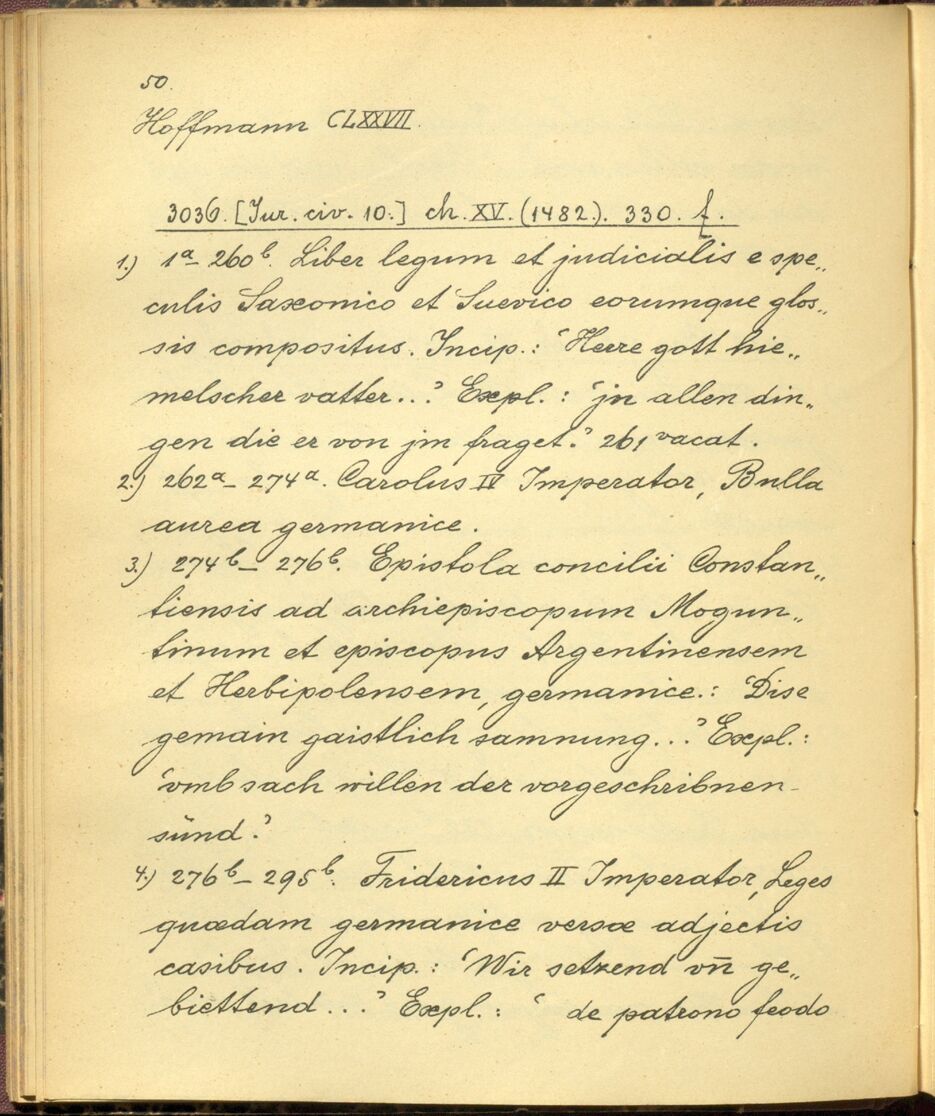 50.
Hoffmann CLXXVII.
3036. [Jur. civ. 10.] ch. XV. (1482.). 330. f.
1.) 1a– 260b. Liber legum et judicialis e spe„
culis Saxonico et Suevico eorumque glos„
sis compositus. Incip.: ‘Herre gott hie„
melscher vatter...’ Expl.: ‘jn allen din„
gen die er von jm fraget.’ 261 vacat.
2.) 262a– 274a. Carolus IV Imperator, Bulla
aurea germanice.
3.) 274b– 276b. Epistola concilii Constan„
tiensis ad archiepiscopum Mogun„
tinum et episcopus Argentinensem
et Herbipolensem, germanice.: ‘Dise
gemain gaistlich samnung...’ Expl.:
‘vmb sach willen der vorgeschribnen
sünd.’
4.) 276b– 295b. Fridericus II Imperator, Leges
quædam germanice versæ adjectis
casibus. Incip.: ‘Wir setzend vn̄ ge„
biettend...’ Expl.: ‘ de patrono feodo